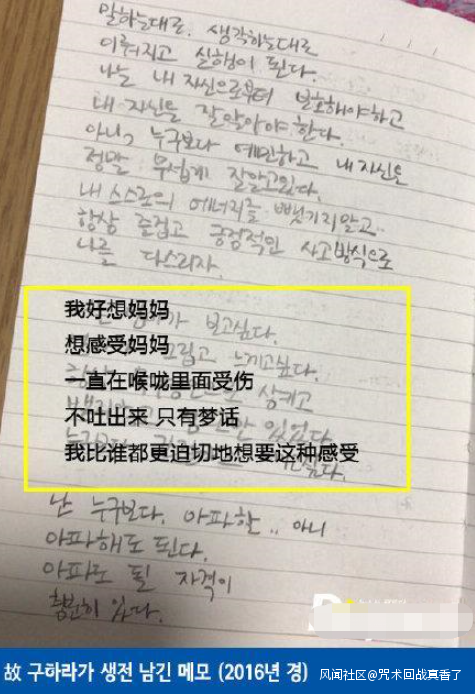 말하는대로. 생각하는대로
이뤄지고 실행이 된다.
나는 내 자신으로부터 보호해야하고
내 자신을 잘알아야 한다.
아니, 누구보다 예민하고 내 자신을
정말 무섭게 잘알고있다.
내 스스로의 에너지를 뺏기지말고..
항상 즐겁고 긍정적인 사고방식으로
나를 다스리자.
我好想妈妈 보고싶다.
想感受妈妈 그립고 느끼고싶다.
一直在喉咙里面受伤 삼키고
不吐出来 只有梦话 있었다
我比谁都更迫切地想要这种感受
난 누구보다. 아파한.. 아니
아파해도 된다.
아파도 될 자격이
충분히 있다.
故 구하라가 생전 남긴 메모 (2016년 경)
风闻社区@咒术回战真香了